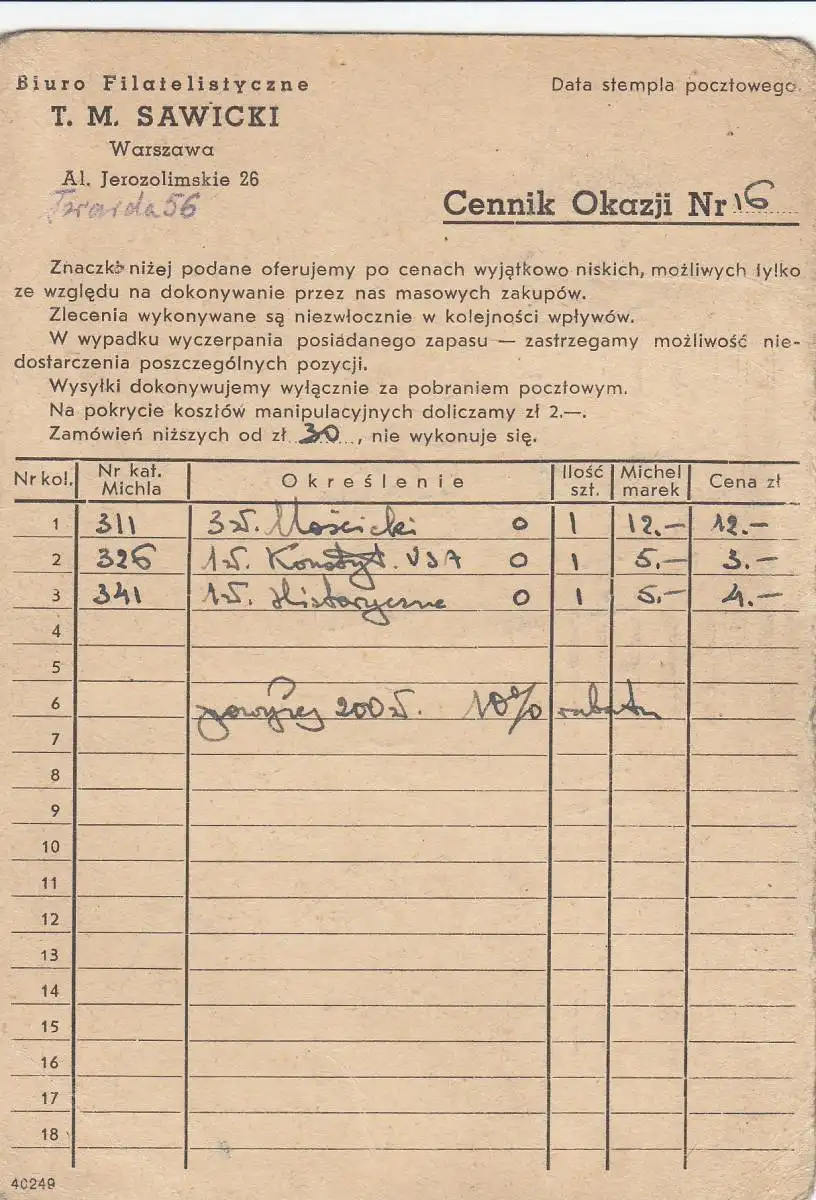 Biuro Filatelistyczne
T. M. SAWICKI
Warszawa
Al. Jerozolimskie 26
Twarda 56
Data stempla pocztowego
Cennik Okazji Nr 16
Znaczki niżej podane oferujemy po cenach wyjątkowo niskich, możliwych tylko
ze względu na dokonywanie przez nas masowych zakupów.
Zlecenia wykonywane są niezwłocznie w kolejności wpływów.
W wypadku wyczerpania posiadanego zapasu — zastrzegamy możliwość nie-
dostarczenia poszczególnych pozycji.
Wysyłki dokonywujemy wyłącznie za pobraniem pocztowym.
Na pokrycie kosztów manipulacyjnych doliczamy zł 2.—.
Zamówień niższych od zł 30, nie wykonuje się.
Nr kol. Nr kat. Michla Określenie Ilość szt. Michel marek Cena zł
1 311 3 zł. Mościcki o 1 12.— 12.—
2 326 1 zł. Konstyt. USA o 1 5.— 3.—
3 341 1 zł. Historyczne o 1 5.— 4.—
4
5
6 powyżej 200 zł. 10% rabatu
7
8
9
10
11
12
13
14
15
16
17
18
40249